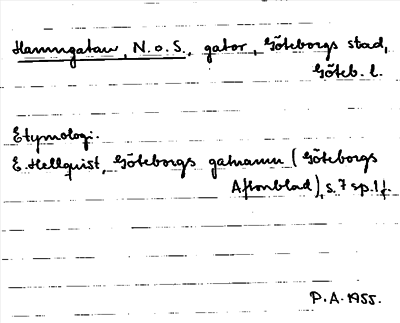 Hamngatan, N. o. S., gator, Göteborgs stad,
Göteb. l.
Etymologi.
E. Hellquist, Göteborgs gatnamn (Göteborgs
Aftonblad), s. 7 sp. 1 f.
P.A. 1955.